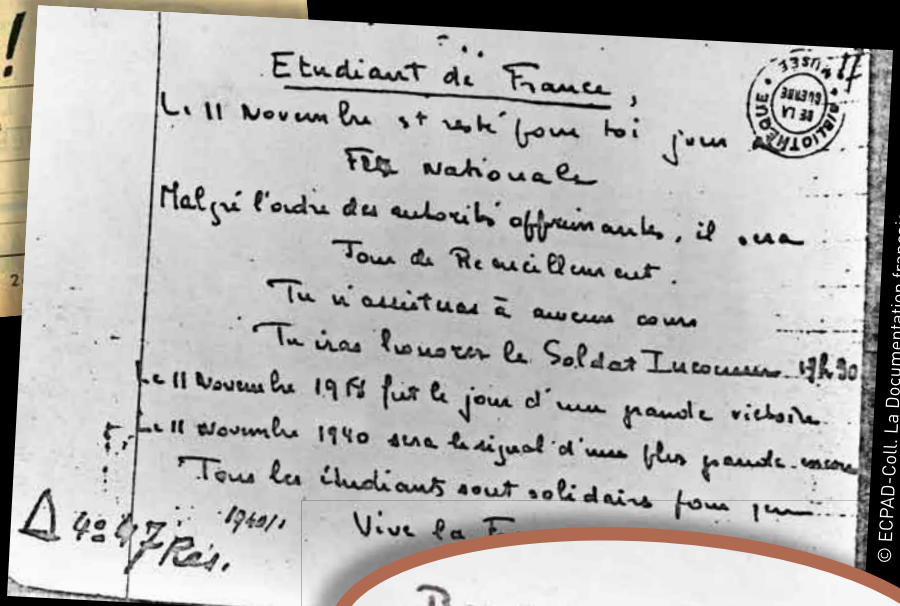 !
2
Etudiant de France,
Le 11 Novembre est resté pour toi jour
Fête Nationale
Malgré l'ordre des autorités opprimantes, il sera
Jour de Recueillement.
Tu n'assisteras à aucun cours
Tu iras honorer le Soldat Inconnu 17h30
Le 11 Novembre 1918 fut le jour d'une grande victoire
Le 11 Novembre 1940 sera le signal d'une plus grande encore
Tous les étudiants sont solidaires pour que
Vive la
1940/1
Rés.
BIBLIOTHÈQUE • MUSÉE
DE LA GUERRE
17
© ECPAD-Coll. La Documentation français